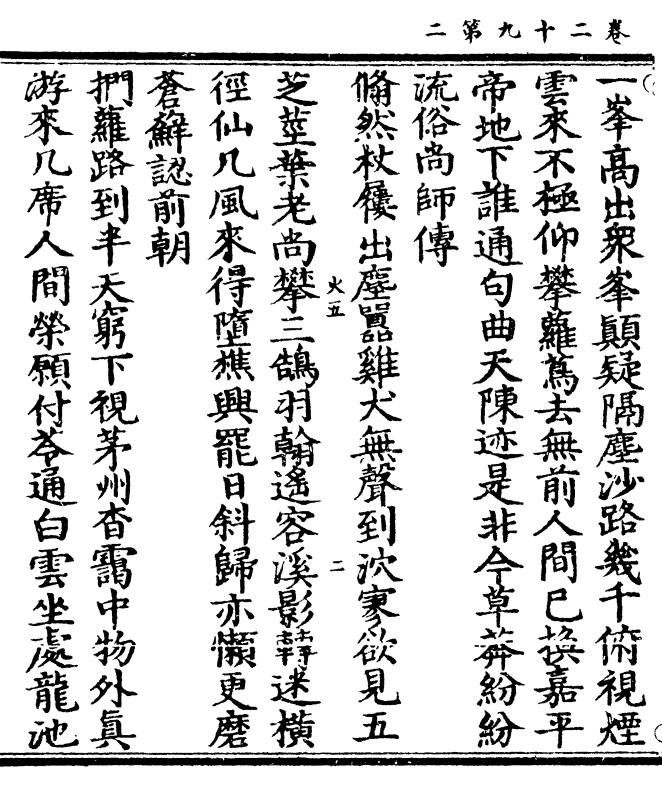 卷二十九第二
一峯高出衆峯顛疑隔塵沙路幾千俯視煙
雲來不極仰攀蘿蔦去無前人間已換嘉平
帝地下誰通句曲天陳迹是非今草莽紛紛
流俗尚師傳
翛然杖屨出塵囂雞犬無聲到泬寥欲見五
芝莖葉老尚攀三鵠羽翰遙容溪影轉迷橫
徑仙几風來得墮樵興罷日斜歸亦懶更磨
蒼蘚認前朝
捫蘿路到半天窮下視茅州杳靄中物外眞
游來几席人間榮願付苓通白雲坐處龍池
火五
二